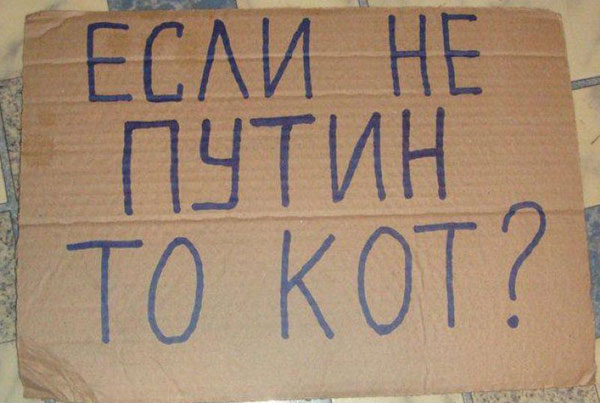 ЕСЛИ НЕ
ПУТИН
ТО КОТ?